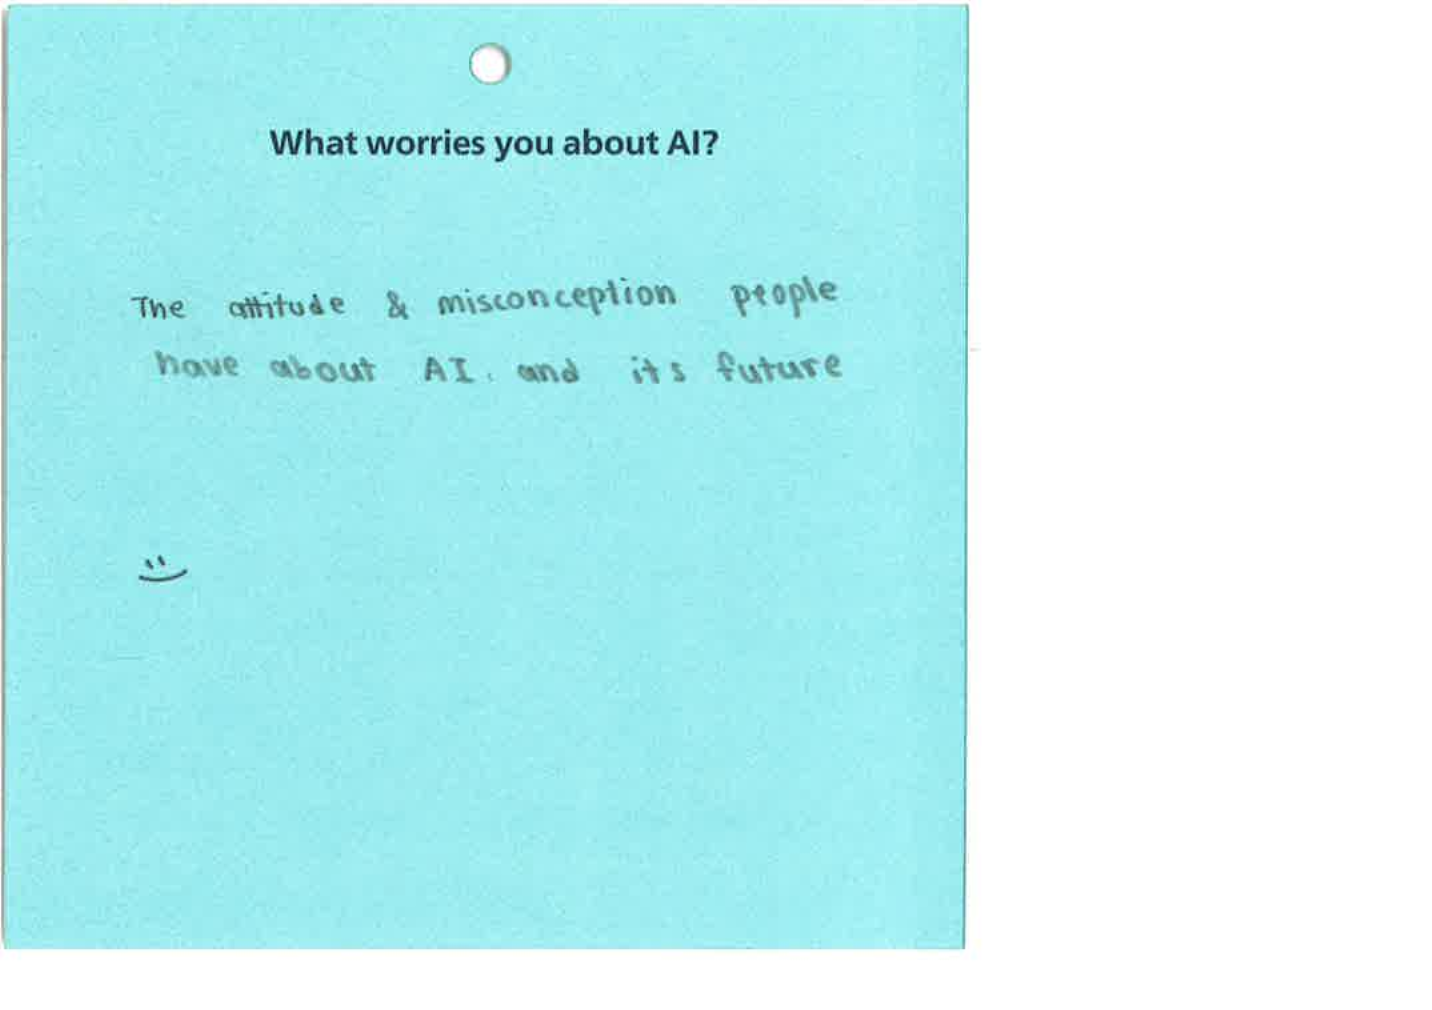 What worries you about AI?
The attitude & misconception people
have about AI. and its future